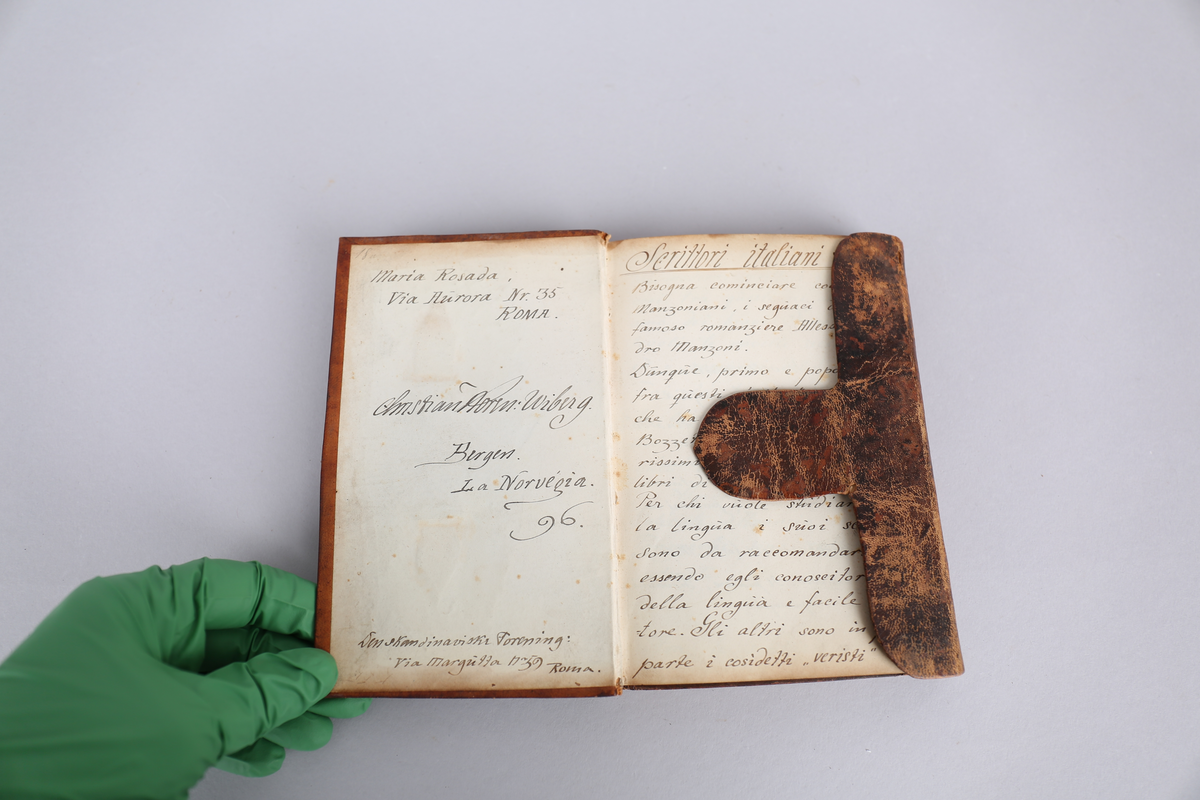 Maria Rosada,
Via Aurora Nr. 35
ROMA.
Christian Horn-Wiberg.
Bergen.
La Norvégia.
96.
Den skandinaviske Forening:
Via Margutta No 59 Roma.
Scrittori italiani
Bisogna cominciare
Manzoniani, i seguaci
famoso romanziere
dro Manzoni.
Dunque, primo e
fra questi
che ha
rissimi
libri di
Per chi vuole
la lingua i suoi
sono da raccomandar
essendo egli conoscitor
della lingua e facile
tore. Gli altri sono in
parte i cosidetti „veristi"